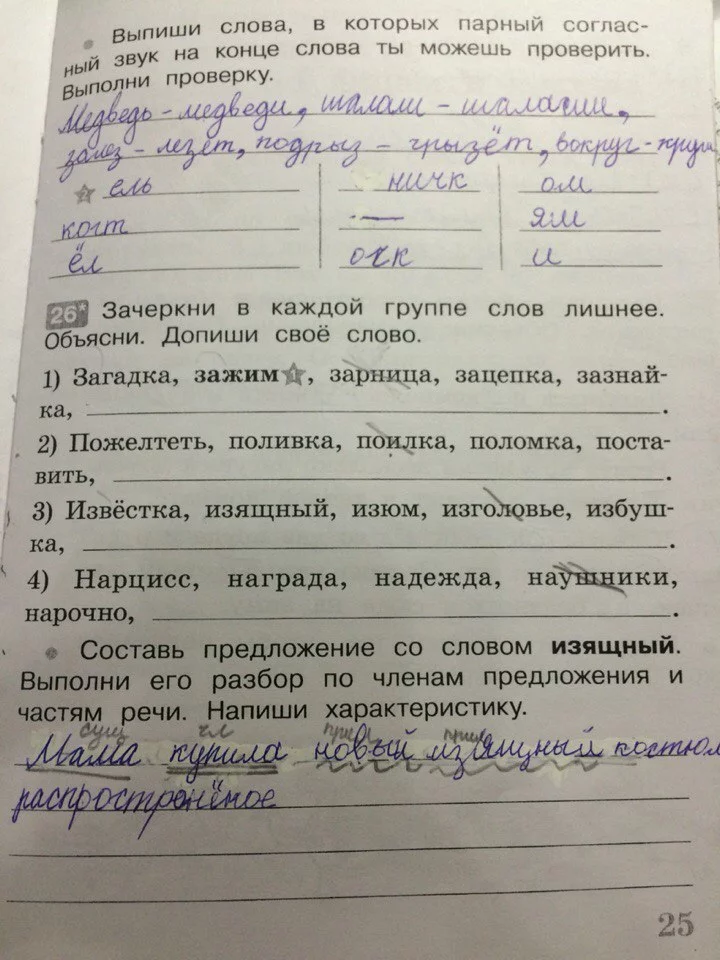 Выпиши слова, в которых парный соглас-
ный звук на конце слова ты можешь проверить.
Выполни проверку.
Медведь - медведи, шалаш - шалаши,
залез - лезет, подрыз - грызёт, вокруг - круги
ель ничк ом
когт — ям
ёл очк и
26* Зачеркни в каждой группе слов лишнее.
Объясни. Допиши своё слово.
1) Загадка, зажим 1, зарница, зацепка, зазнай-
ка, .
2) Пожелтеть, поливка, поилка, поломка, поста-
вить, .
3) Извёстка, изящный, изюм, изголовье, избуш-
ка, .
4) Нарцисс, награда, надежда, наушники,
нарочно, .
Составь предложение со словом изящный.
Выполни его разбор по членам предложения и
частям речи. Напиши характеристику.
сущ гл прил прил
Мама купила новый изящный костюм
распространёное
25